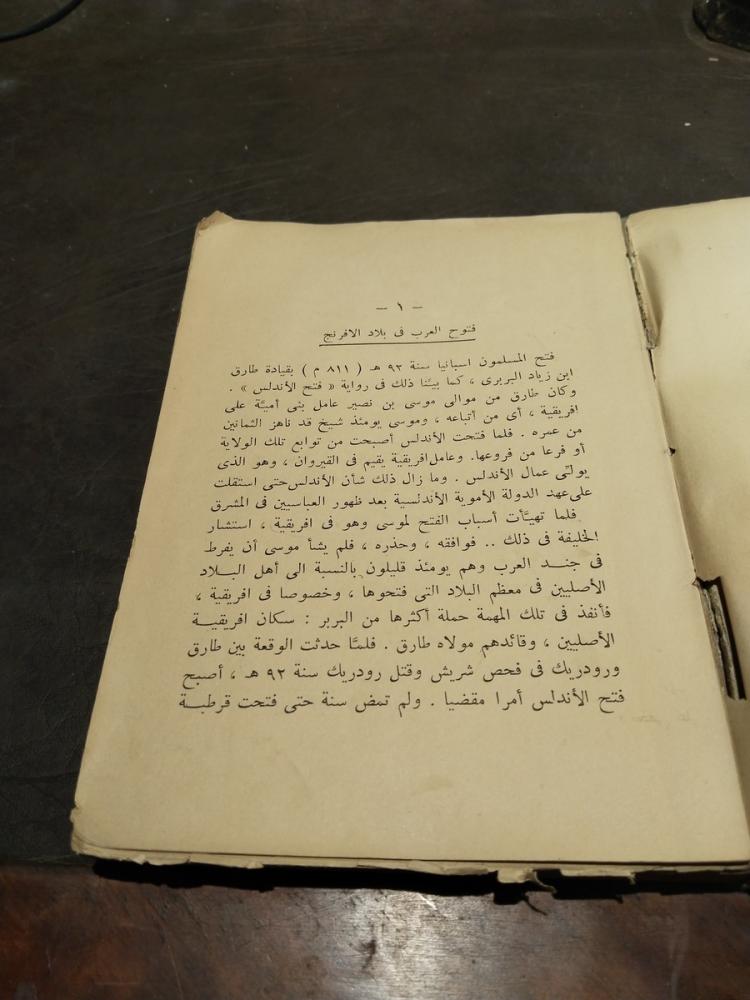 – ١ –
فتوح العرب فى بلاد الافرنج
فتح المسلمون اسبانيا سنة ٩٢ هـ ( ٨١١ م ) بقيادة طارق
ابن زياد البربرى ، كما بيـَّنا ذلك فى رواية « فتح الأندلس » .
وكان طارق من موالى موسى بن نصير عامل بنى أميَّة على
افريقية ، أى من أتباعه ، وموسى يومئذ شيخ قد ناهز الثمانين
من عمره . فلما فتحت الأندلس أصبحت من توابع تلك الولاية
أو فرعا من فروعها. وعامل افريقية يقيم فى القيروان ، وهو الذى
يولـِّى عمال الأندلس . وما زال ذلك شأن الأندلس حتى استقلت
على عهد الدولة الأموية الأندلسية بعد ظهور العباسيين فى المشرق
فلما تهيـَّأت أسباب الفتح لموسى وهو فى افريقية ، استشار
الخليفة فى ذلك .. فوافقه ، وحذره ، فلم يشأ موسى أن يفرط
فى جنـــد العرب وهم يومئذ قليلون بالنسبة الى أهل البـــلاد
الأصليين فى معظم البلاد التى فتحوها ، وخصوصا فى افريقية ،
فأنفذ فى تلك المهمة حملة أكثرها من البربر : سكان افريقيـــة
الأصليين ، وقائدهم مولاه طارق . فلمـَّا حدثت الوقعة بين طارق
ورودريك فى فحص شريش وقتل رودريك سنة ٩٢ هـ ، أصبح
فتح الأندلس أمرا مقضيا . ولم تمض سنة حتى فتحت قرطبـــة